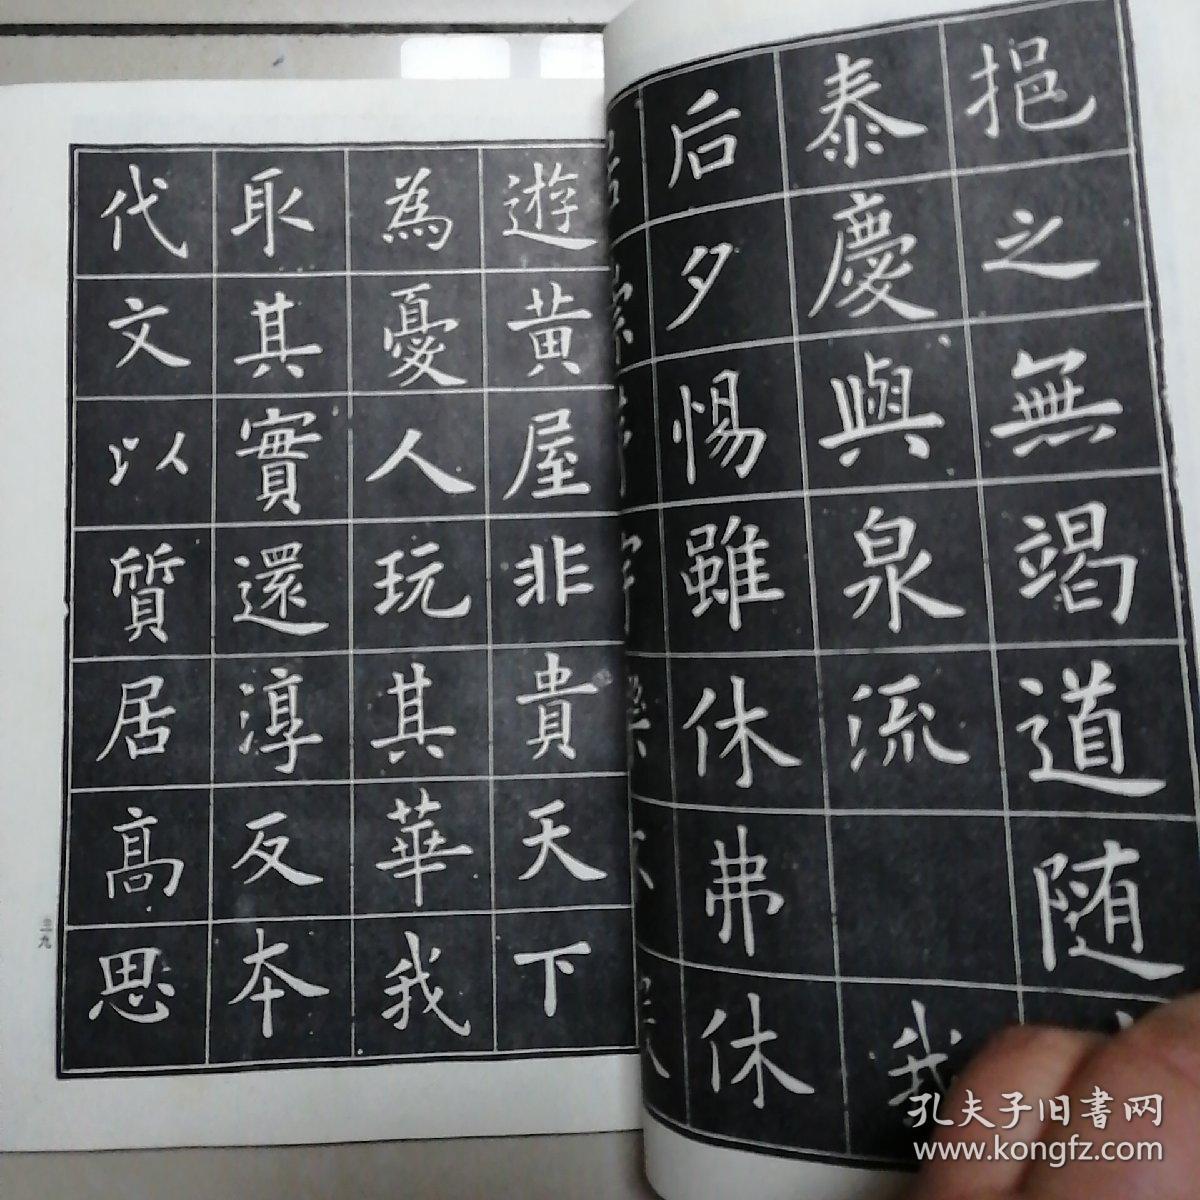 挹之無竭道随
泰慶與泉流 我
后夕惕雖休弗休
遊黄屋非貴天下
為憂人玩其華我
取其實還淳反本
代文以質居高思
三九
孔夫子旧書网
www.kongfz.com